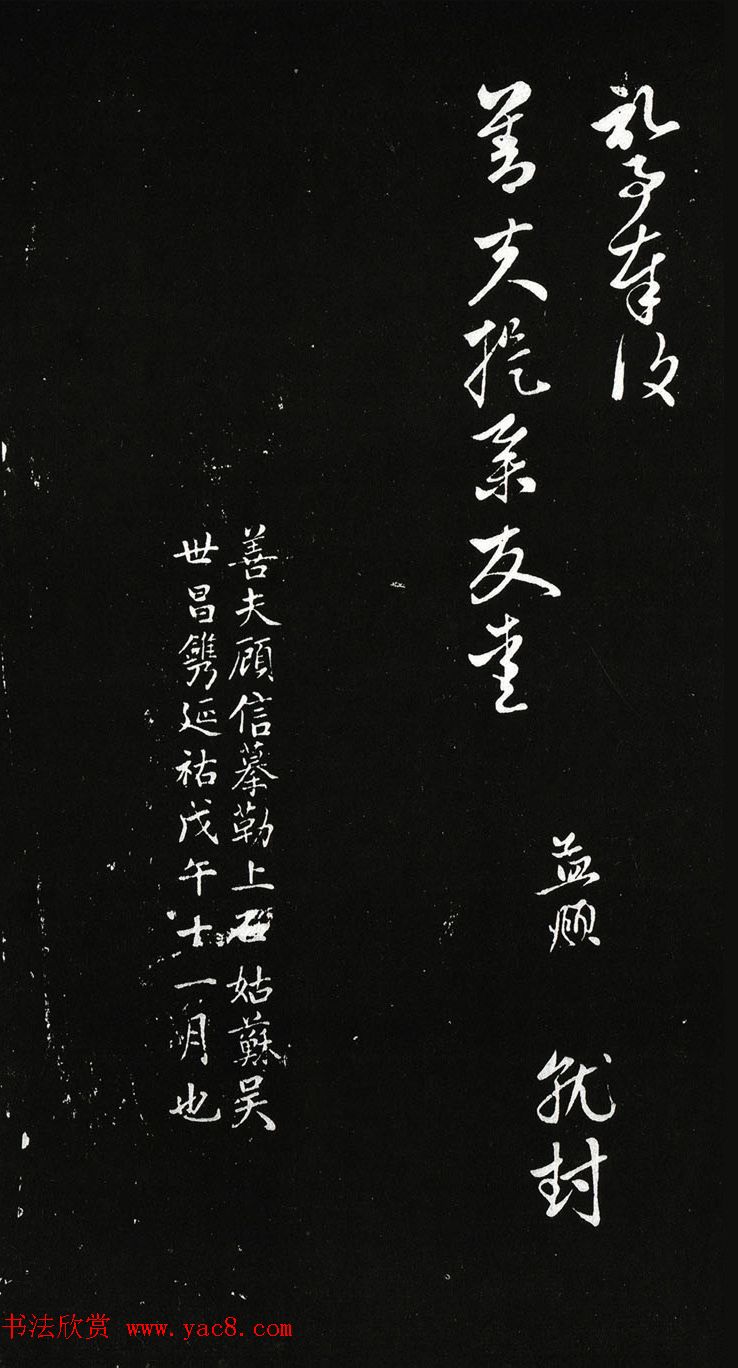 礼事奉復
善夫提舉友愛
孟頫 就封
善夫顧信摹勒上石姑蘇吴
世昌鐫延祐戊午十一月也
书法欣赏 www.yac8.com